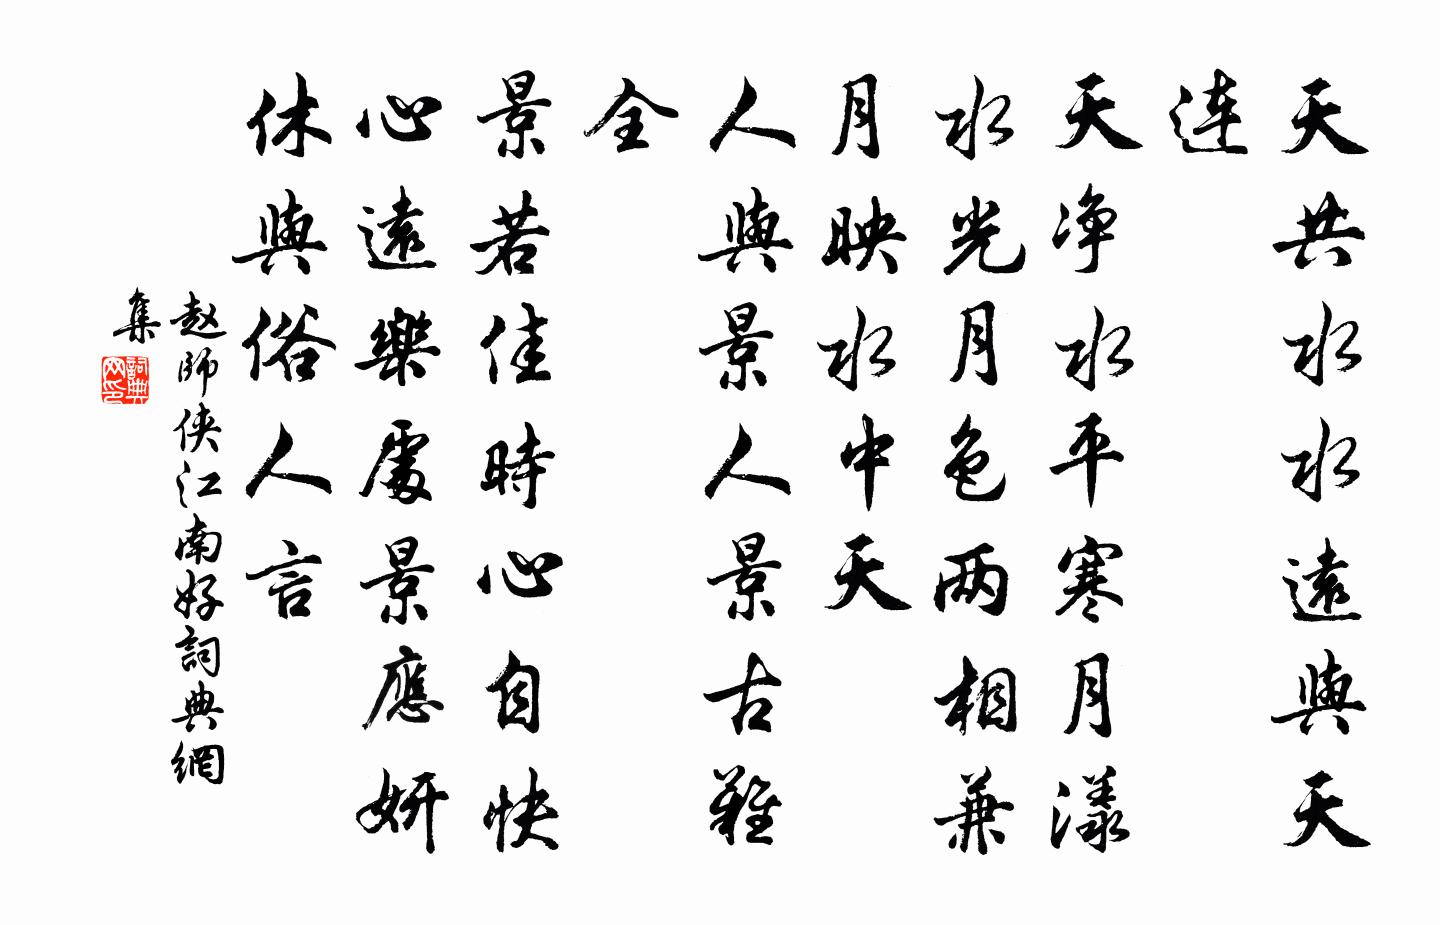 天共水水遠與天
连
天净水平寒月漾
水光月色两相兼
月映水中天
人與景人景古難
全
景若佳時心自快
心遠樂處景應妍
休與俗人言
赵師侠江南好詞典網
集
詞典网印